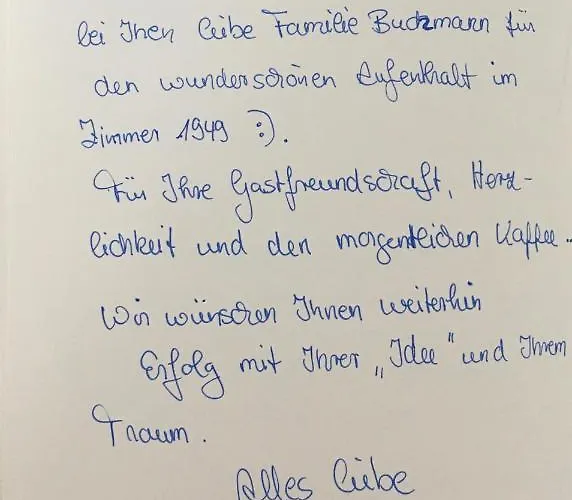 bei Ihen liebe Familie Buckmann für
den wunderschönen Aufenthalt im
Zimmer 1949 :).
Für Ihre Gastfreundschaft, Herz-
lichkeit und den morgentlichen Kaffee..
Wir wünschen Ihnen weiterhin
Erfolg mit Ihrer „Idee" und Ihrem
Traum.
Alles Liebe